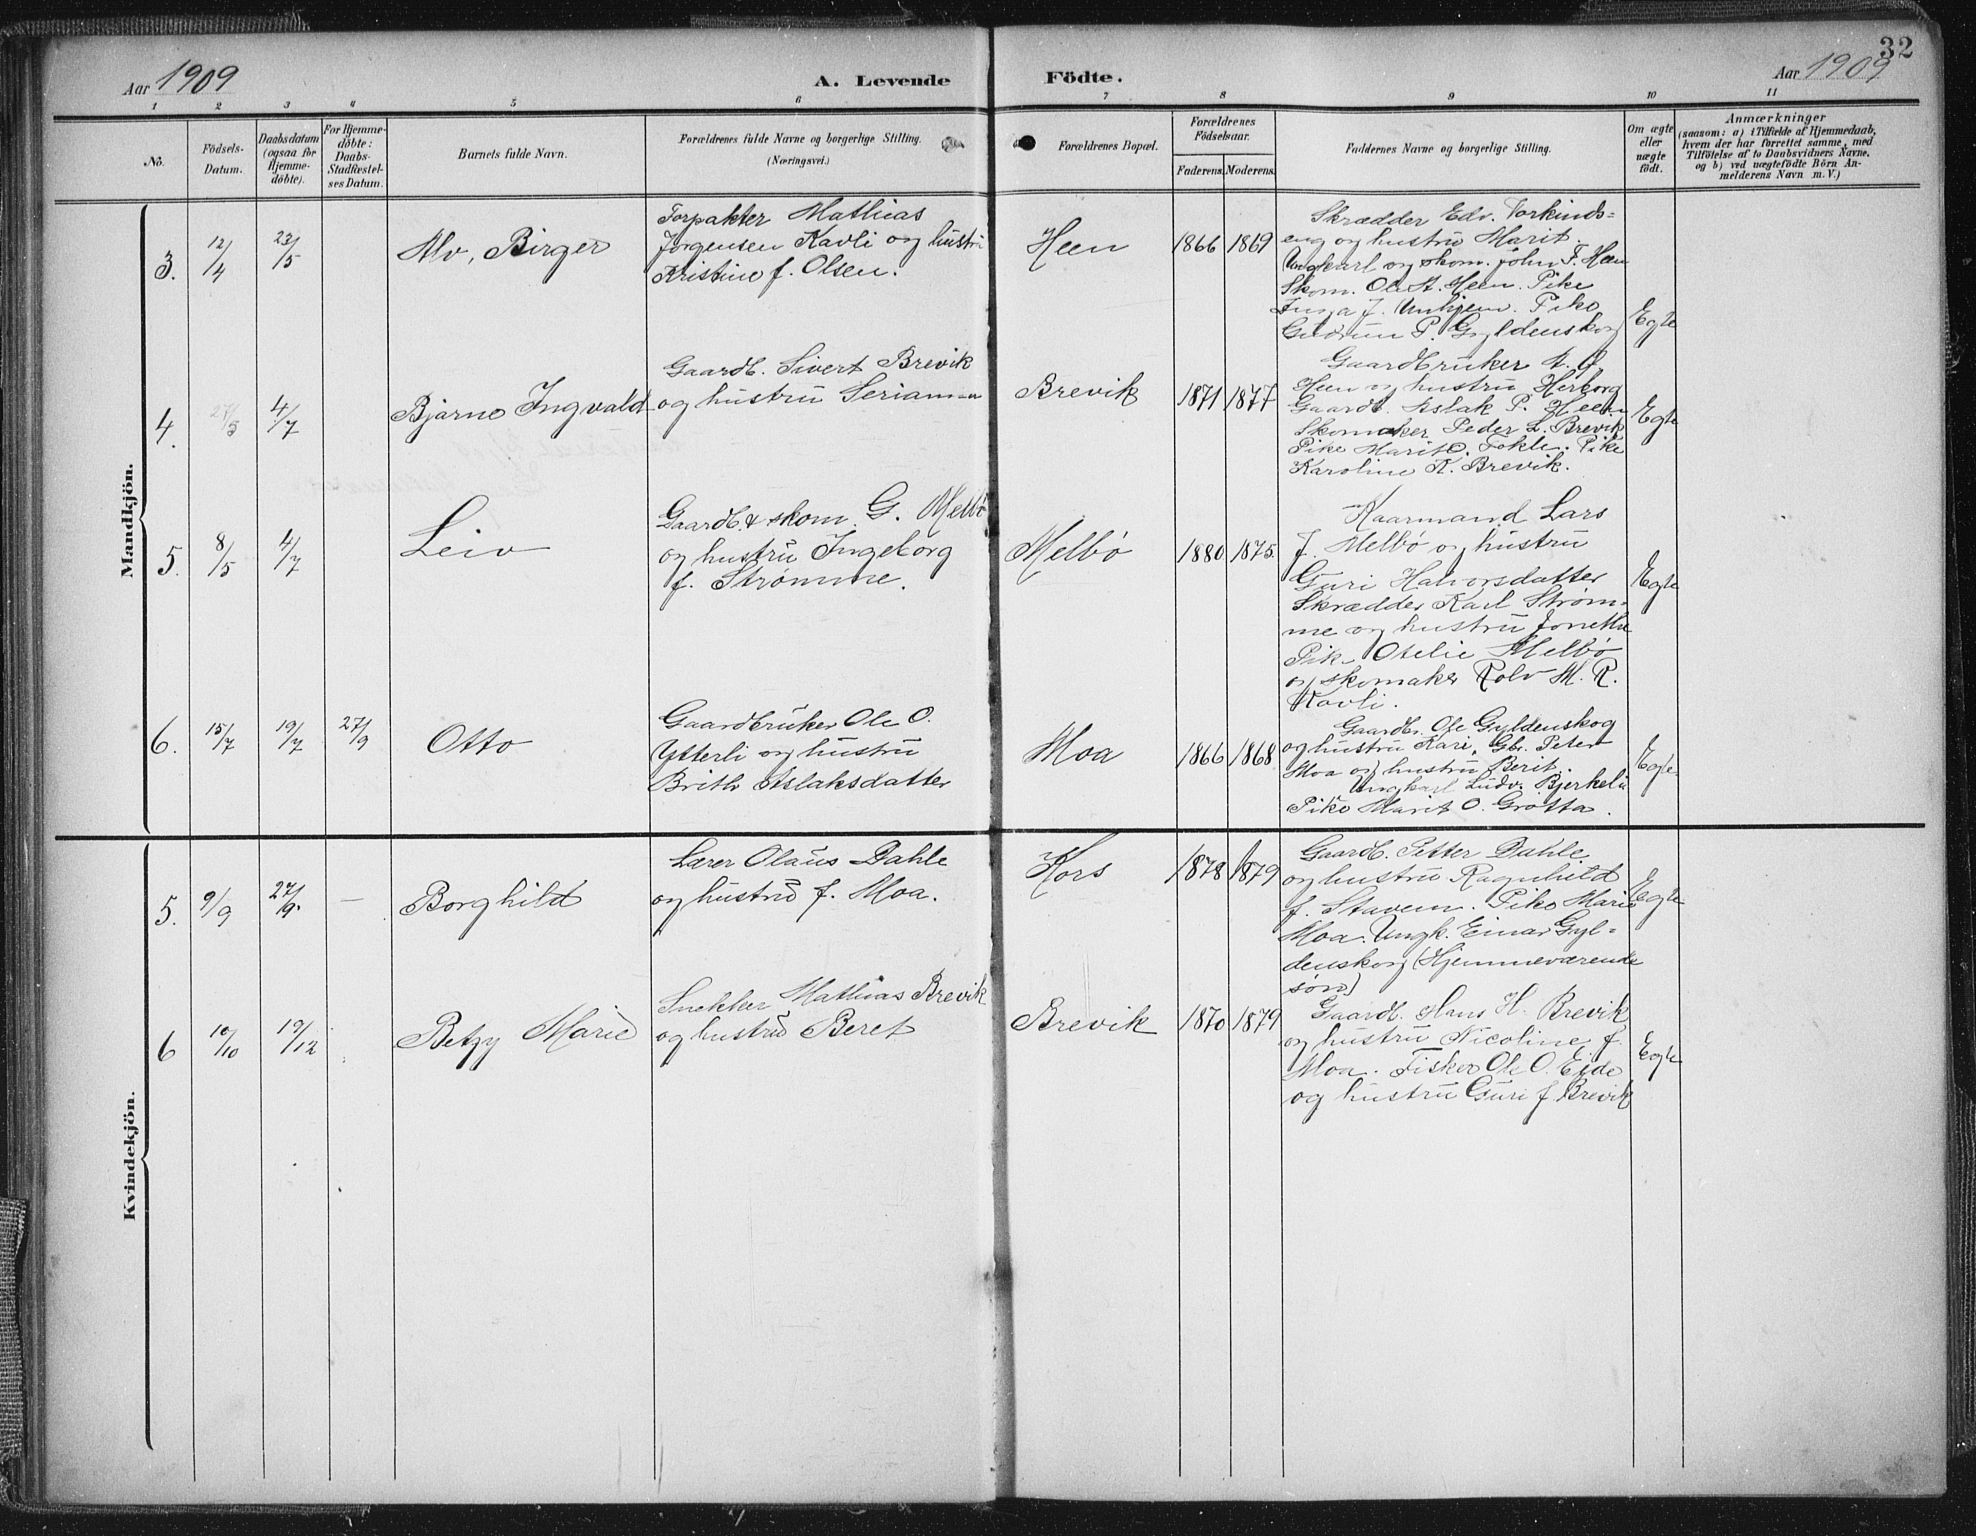 32
Aar 1909
A. Levende Födte.
Aar 1909
1 2 3 4 5 6 7 8 9 10 11
No.
Födsels-
Datum.
Daabsdatum
(ogsaa for
Hjemme-
döbte).
For Hjemme-
döbte:
Daabs-
Stadfæstel-
ses Datum.
Barnets fulde Navn.
Forældrenes fulde Navne og borgerlige Stilling.
(Næringsvei.)
Forældrenes Bopæl.
Forældrenes
Födselsaar.
Faderens. Moderens.
Faddernes Navne og borgerlige Stilling.
Om ægte
eller
uægte
födt.
Anmærkninger
(saasom: a) i Tilfælde af Hjemmedaab,
hvem der har forrettet samme, med
Tilföielse af to Daabsvidners Navne,
og b) ved uægtefödte Börn An-
melderens Navn m. V.)
Mandkjön.
3. 12/4 23/5
Alv, Birger
Forpakter Mathias
Jørgensen Kavli og hustru
Kristine f. Olsen.
Heen
1866 1869
Skrædder Edv. Torkinds-
eng og hustru Marit.
Ungkarl og skom. John T. Heen
Skom. Ole A. Heen. Pike
Inga J. Unhjem. Pike
Gudrun P. Gyldenskog
Egte
4. 27/5 4/7
Bjarne Ingvald
Gaardb. Sivert Brevik
og hustru Serianna
Brevik
1871 1877
Gaardbruker
Heen og hustru Herborg
Gaardb. Aslak P. Heen
Skomaker Peder L. Brevik
Pike Marit O. Fokle. Pike
Karoline K. Brevik.
Egte
5. 8/5 4/7
Leiv
Gaardb. & skom. G. Melbø
og hustru Ingeborg
f. Strømme.
Melbø
1880 1875
Kaarmand Lars
J. Melbø og hustru
Guri Halvorsdatter
Skrædder Karl Strøm-
me og hustru Jonetha
Pike Otelie Melbø
og skomaker Rolv M. R.
Kavli.
Egte
6. 15/7 19/7 27/9
Otto
Gaardbruker Ole O.
Ytterli og hustru
Brith Aslaksdatter
Moa
1866 1868
Gaardbr. Ole Gyldenskog
og hustru Kari, Gbr. Peter
Moa og hustru Berit.
Ungkarl Ludv. Bjerkeli
Pike Marit O. Grøtta.
Egte
Kvindekjön.
5. 9/9 27/9. —
Borghild
Lærer Olaus Dahle
og hustru f. Moa.
Kors
1878 1879
Gaardb. Petter Dahle
og hustru Ragnhild
f. Stavem. Pike Marie
Moa. Ungk. Einar Gyl-
denskog (Hjemmeværende
søn)
Egte
6 10/10 19/12
Betzy Marie
Snekker Mathias Brevik
og hustru Beret
Brevik
1870 1879
Gaardb. Hans H. Brevik
og hustru Nicoline f.
Moa. Fisker Ole O. Eide
og hustru Guri f Brevik
Egte